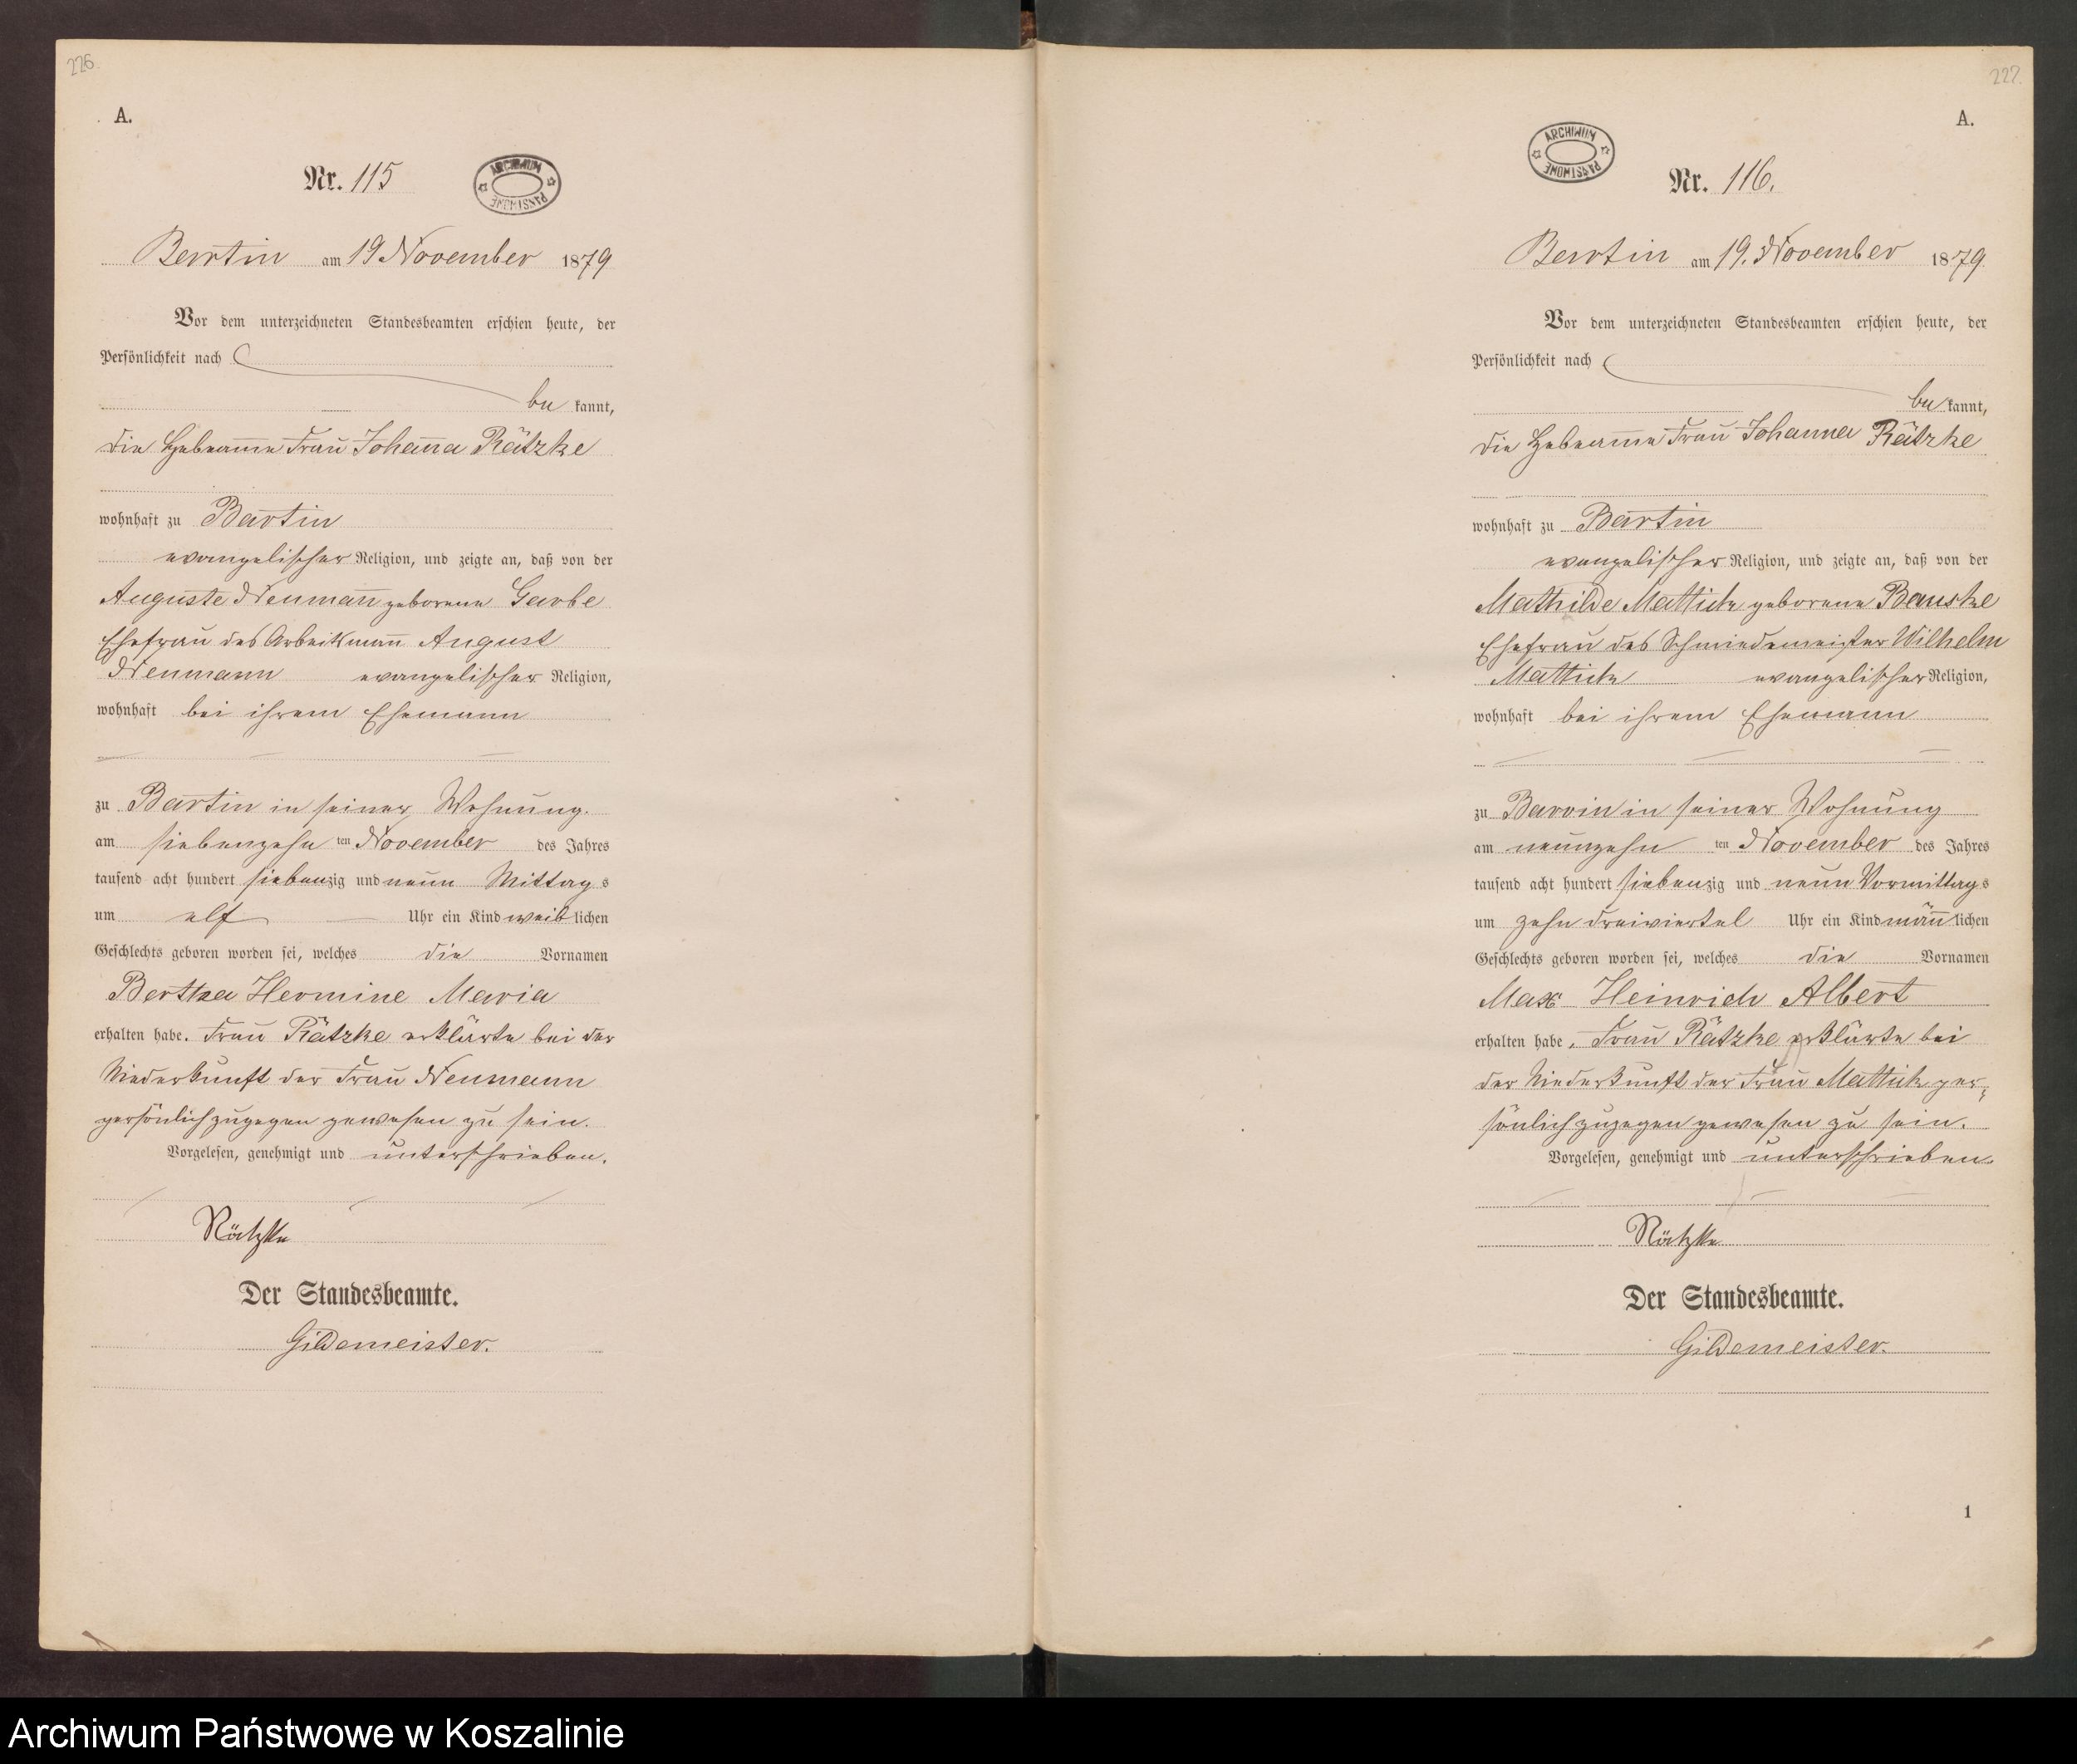 226.
A.
Nr. 115
ARCHIWUM PAŃSTWOWE
Bartin am 19 November 1879
Vor dem unterzeichneten Standesbeamten erschien heute, der
Persönlichkeit nach
be kannt,
die Hebeam̅e Frau Johan̅a Rätzke
wohnhaft zu Bartin
evangelischer Religion, und zeigte an, daß von der
Auguste Neuman̅ geborene Garbe
Ehefrau des Arbeitsman̅ August
Neumann evangelischer Religion,
wohnhaft bei ihrem Ehemann
zu Bartin in seiner Wohnung.
am siebenzehn ten November des Jahres
tausend acht hundert siebenzig und neun Mittags
um elf Uhr ein Kind weiblichen
Geschlechts geboren worden sei, welches die Vornamen
Bertha Hermine Maria
erhalten habe. Frau Rätzke erklärte bei der
Niederkunft der Frau Neumann
persönlich zugegen gewesen zu sein.
Vorgelesen, genehmigt und unterschrieben.
Rätzke
Der Standesbeamte.
Gildemeister.
227.
A.
ARCHIWUM PAŃSTWOWE
Nr. 116.
Bartin am 19. November 1879
Vor dem unterzeichneten Standesbeamten erschien heute, der
Persönlichkeit nach
be kannt,
die Hebeam̅e Frau Johanna Rätzke
wohnhaft zu Bartin
evangelischer Religion, und zeigte an, daß von der
Mathilde Mattick geborene Bauske
Ehefrau des Schmiedemeister Wilhelm
Mattick evangelischer Religion,
wohnhaft bei ihrem Ehemann
zu Barvin in seiner Wohnung
am neunzehn ten November des Jahres
tausend acht hundert siebenzig und neun Vormittags
um zehn dreiviertel Uhr ein Kind män̅lichen
Geschlechts geboren worden sei, welches die Vornamen
Max Heinrich Albert
erhalten habe, Frau Rätzke erklärte bei
der Niederkunft der Frau Mattick per-
sönlich zugegen gewesen zu sein.
Vorgelesen, genehmigt und unterschrieben.
Rätzke
Der Standesbeamte.
Gildemeister.
1
Archiwum Państwowe w Koszalinie